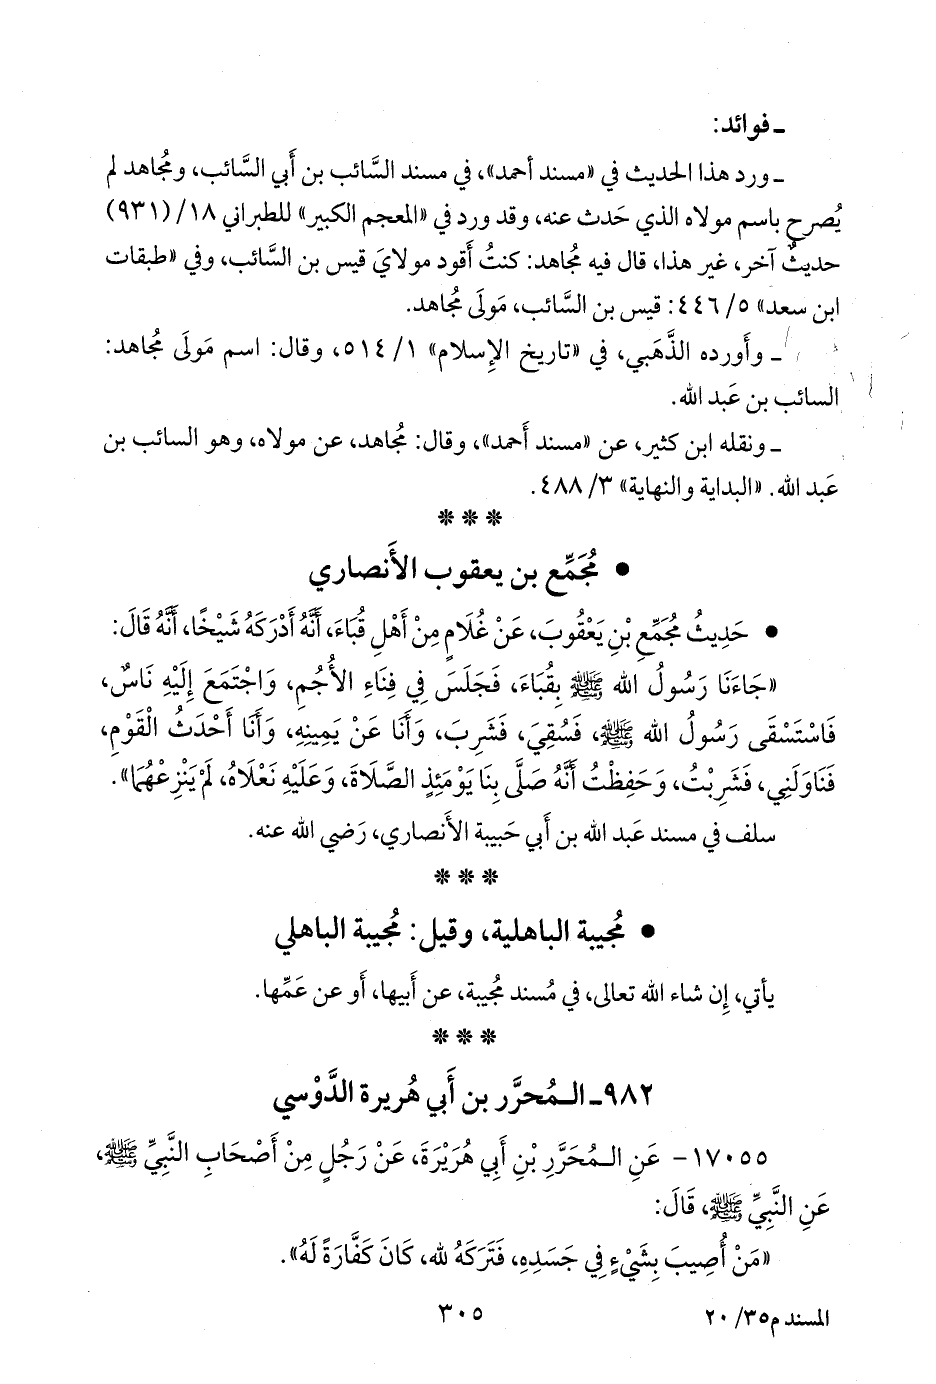 ـ فوائد:
ـ ورد هذا الحديث في «مسند أحمد»، في مسند السَّائب بن أبي السَّائب، ومُجاهد لم
يُصرح باسم مولاه الذي حَدث عنه، وقد ورد في «المعجم الكبير» للطبراني ١٨/(٩٣١)
حديثٌ آخر، غير هذا، قال فيه مُجاهد: كنتُ أَقود مولايَ قيس بن السَّائب، وفي «طبقات
ابن سعد» ٥/ ٤٤٦: قيس بن السَّائب، مَولَى مُجاهد.
ـ وأَورده الذَّهَبي، في «تاريخ الإِسلام» ١/ ٥١٤، وقال: اسم مَولَى مُجاهد:
السائب بن عَبد الله.
ـ ونقله ابن كثير، عن «مسند أَحمد»، وقال: مُجاهد، عن مولاه، وهو السائب بن
عَبد الله. «البداية والنهاية» ٣/ ٤٨٨.
* * *
• مُجَمِّع بن يعقوب الأَنصاري
• حَدِيثُ مُجَمِّعِ بْنِ يَعْقُوبَ، عَنْ غُلَامٍ مِنْ أَهْلِ قُبَاءَ، أَنَّهُ أَدْرَكَهُ شَيْخًا، أَنَّهُ قَالَ:
«جَاءَنَا رَسُولُ الله ﷺ بِقُبَاءَ، فَجَلَسَ فِي فِنَاءِ الأُجُمِ، وَاجْتَمَعَ إِلَيْهِ نَاسٌ،
فَاسْتَسْقَى رَسُولُ الله ﷺ، فَسُقِيَ، فَشَرِبَ، وَأَنَا عَنْ يَمِينِهِ، وَأَنَا أَحْدَثُ الْقَوْمِ،
فَنَاوَلَنِي، فَشَرِبْتُ، وَحَفِظْتُ أَنَّهُ صَلَّى بِنَا يَوْمَئِذٍ الصَّلَاةَ، وَعَلَيْهِ نَعْلَاهُ، لَمْ يَنْزِعْهُمَا».
سلف في مسند عَبد الله بن أَبي حَبيبة الأَنصاري، رَضي الله عنه.
* * *
• مُجيبة الباهلية، وقيل: مُجيبة الباهلي
يأتي، إِن شاء الله تعالى، في مُسند مُجيبة، عن أَبيها، أَو عن عَمِّها.
* * *
٩٨٢ـ المُحرَّر بن أَبي هُريرة الدَّوْسي
١٧٠٥٥- عَنِ المُحَرَّرِ بْنِ أَبِي هُرَيْرَةَ، عَنْ رَجُلٍ مِنْ أَصْحَابِ النَّبِيِّ ﷺ،
عَنِ النَّبِيِّ ﷺ، قَالَ:
«مَنْ أُصِيبَ بِشَيْءٍ فِي جَسَدِهِ، فَتَرَكَهُ لله، كَانَ كَفَّارَةً لَهُ».
المسند م٣٥/ ٢٠
٣٠٥